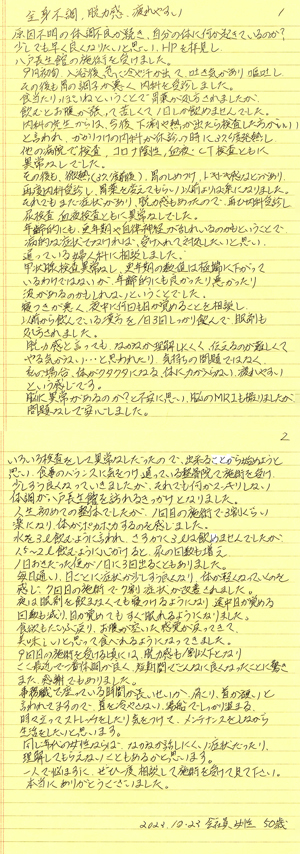 全身不調、脱力感、疲れやすい 1
原因不明の体調不良が続き、自分の体に何が起きているのか?
少しでも早く良くなりたいと思い、HPを拝見し
八戸長生館の施術を受けました。
9月初旬、入浴後、急に冷や汗が出て、吐き気があり嘔吐し
その後も胃の調子が悪く内科を受診しました。
食当たりっぽいねということで胃薬が処方されましたが、
飲むとお腹が張って苦しくて1日しか飲めませんでした。
内科の先生からは、今後、下痢や熱が出たら検査した方がいい
と言われ、かかりつけの内科が休診の時に37.5発熱し
他の病院で検査、コロナ陰性、血液・CT検査ともに
異常なしでした。
その後も、微熱(37.3℃前後)、胃のしめつけ、
再度内科受診し、胃薬を変えてもらい以前よりは楽になりました。
それでもまだ症状があり、脱力感もあったので、再び内科受診し
尿検査、血液検査ともに異常なしでした。
年齢的にも、更年期や自律神経が乱れているのかもということで
病的な症状でなければ、受け入れて対処したいと思い、
通っている婦人科に相談しました。
甲状腺検査異常なし、更年期の数値は極端に下がって
いるわけではないが、年齢的にも良かったり悪かったり
波があるのかもしれないということでした。
寝つきが悪く、夜中に何回も目が覚めることを相談し
以前から飲んでいる漢方を1日3回しっかり飲んで、眠剤も
処方されました。
脱力感と言っても、なかなか理解しにくく、伝えるのが難しくて
やる気がない…と思われたり、気持ちの問題ではなく、
私の場合、体がクタクタになる、体に力が入らない、疲れやすい
という感じです。
脳に異常があるのかと不安に思い、脳のMRIも撮りましたが
問題なしで安心しました。
2
いろいろ検査をして異常なしだったので、出来ることから始めようと
思い、食事のバランスに気をつけ、通っている整骨院で施術を受け、
少しずつ良くなっていきましたが、それでも何かスッキリしない
体調が八戸長生館を訪れるきっかけとなりました。
人生初めての整体でしたが、1回目の施術で3割くらい
楽になり、体がポカポカするのを感じました。
水を3L飲むように言われ、さすがに3Lは飲めませんでしたが
1.5〜2L飲むように心がけると、尿の回数も増え
1日おきだった便が1日に3回出ることもありました。
毎日通い、日ごとに症状が少しずつ良くなり、体が軽くなっていくのを
感じ、7回目の施術で7割症状が改善されました。
夜は眠剤を飲まなくても寝つけるようになり、途中目が覚める
回数も減り、目が覚めてもすぐ眠れるようになりました。
食欲もたっぷり戻り、お腹が空いた感覚が戻ってきて、
美味しいと思って食べられるようになってきました。
9回目の施術を受ける頃には、脱力感も1割以下となり
ここ最近で1番体調が良く、短期間でこんなに良くなったことに驚き
また、感謝でもありました。
事務職で座っている時間が長いせいか、肩こり、首が硬いと
言われてますので、首を冷やさない、湯船でしっかり温まる、
時々立ってストレッチをしたり気をつけて、メンテナンスをしながら
生活をしたいと思います。
同じ年代の女性ならば、なかなか話しにくい症状だったり、
理解してもらえないこともあるかと思います。
一人で悩まずに、ぜひ一度相談して施術を受けて見て下さい。
本当にありがとうございました。
2023.10.23 会社員 女性 50歳